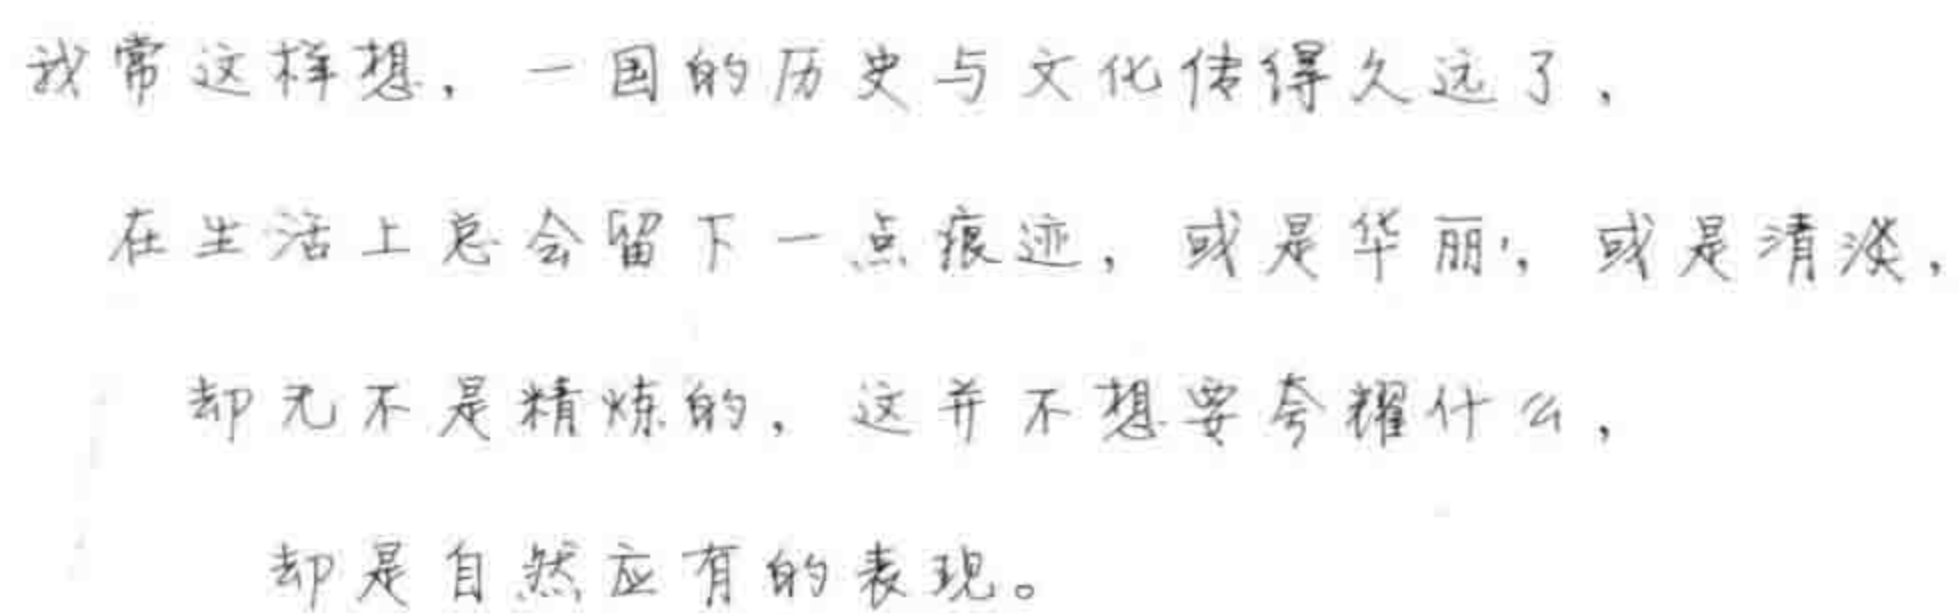 我常这样想，一国的历史与文化传得久远了，
在生活上总会留下一点痕迹，或是华丽，或是清淡，
却无不是精炼的，这并不想要夸耀什么，
却是自然应有的表现。